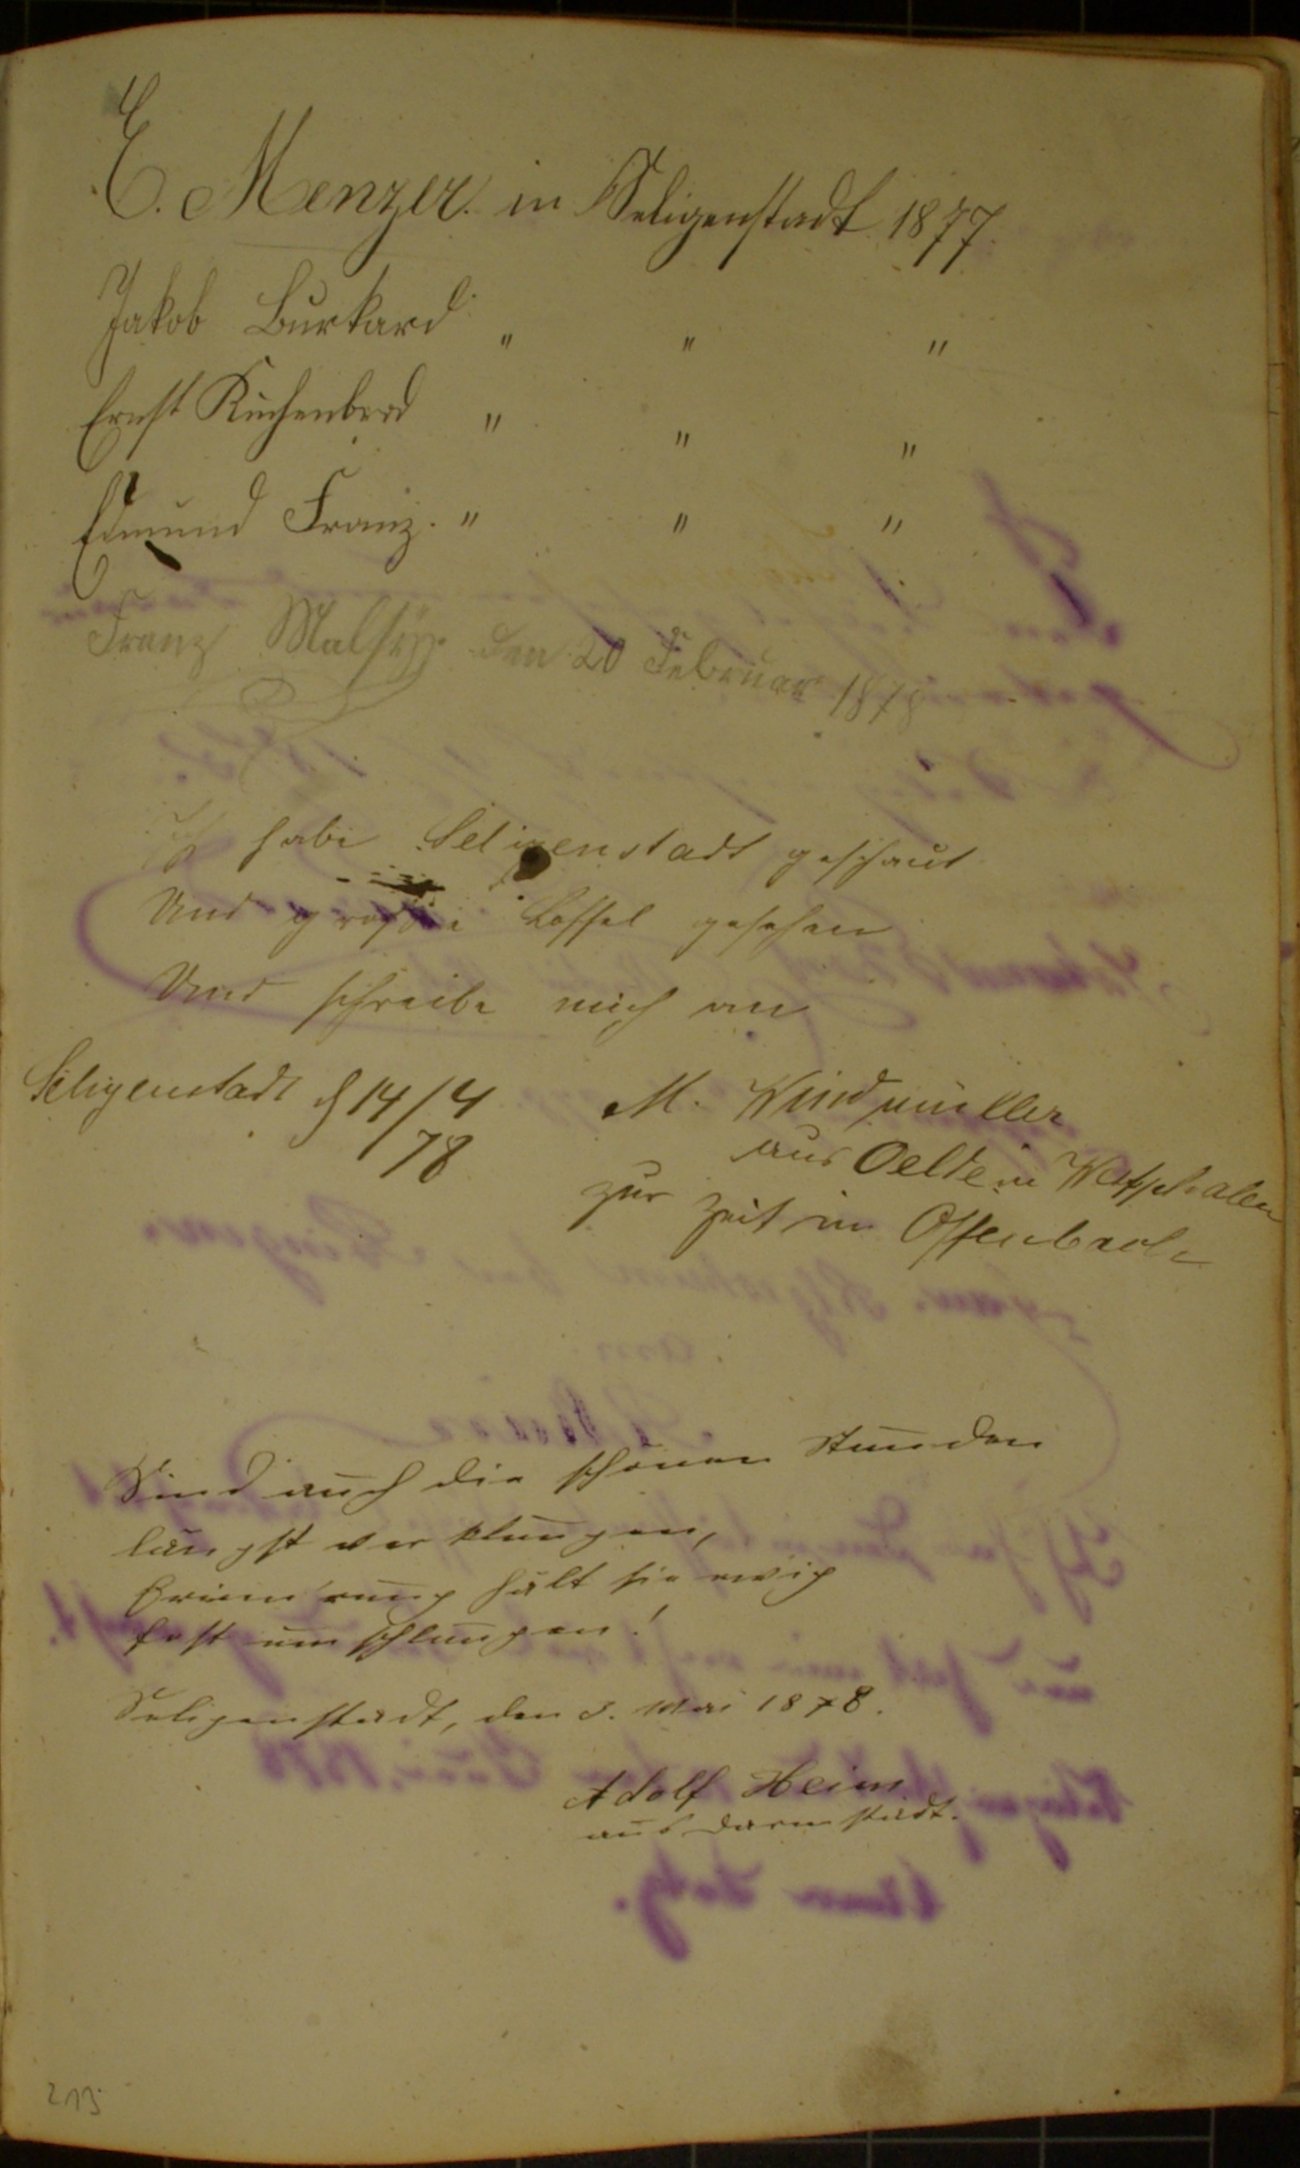 E. Menzer. in Seligenstadt 1877.
Jakob Burkard " " "
Ernst Kuchenbrod " " "
Edmund Franz. " " "
Franz den 20 Februar 1878
Ich habe Seligenstadt geschaut
Und große Löffel gesehen
Und schreibe mich an
Seligenstadt d 14/4 78
M. Windmüller
aus Oelde in Westphalen
zur Zeit in Offenbach
Sind auch die schönen Stunden
längst verklungen,
Erinn'rung hält sie ewig
fest umschlungen!
Seligenstadt, den 3. Mai 1878.
Adolf Heim
aus Darmstadt.
213